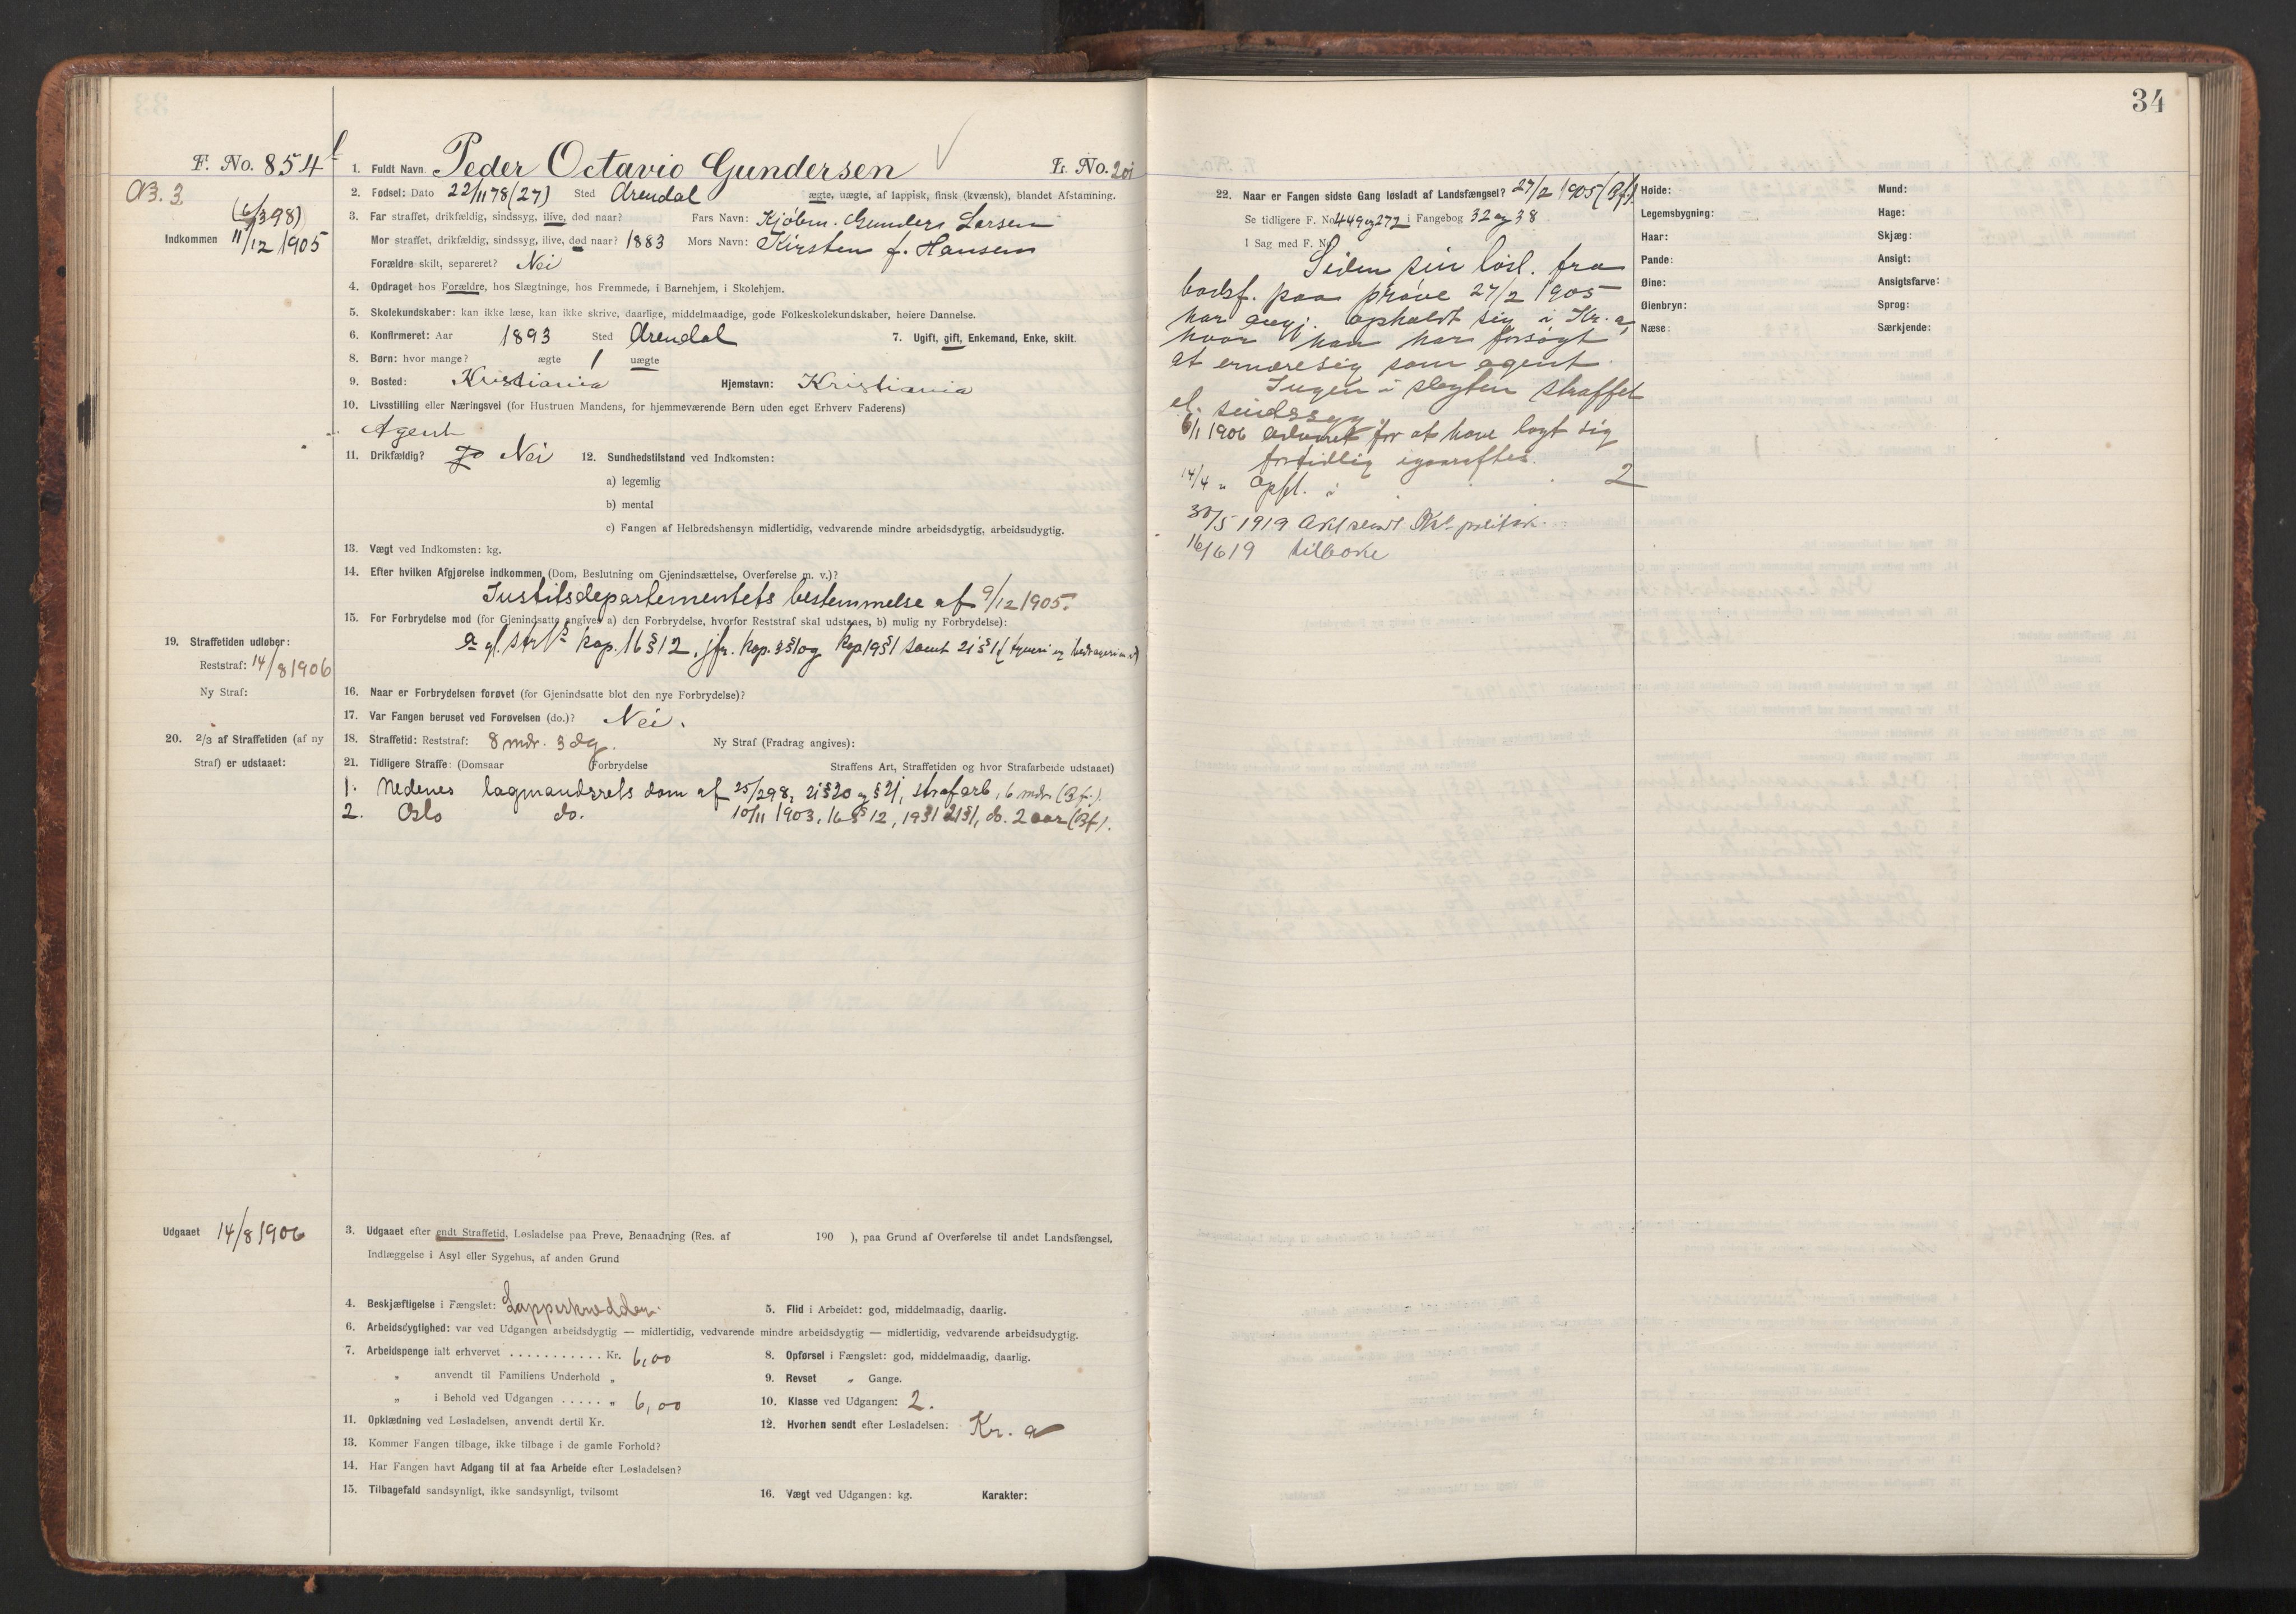 34
F. No. 854
1. Fuldt Navn Peder Octavio Gundersen
L. No. 201
B. 3
2. Fødsel: Dato 22/11 78 (27) Sted Arendal ægte, uægte, af lappisk, finsk (kvænsk), blandet Afstamning.
(6/3 98)
Indkommen 11/12 1905
3. Far straffet, drikfældig, sindssyg, ilive, død naar? Fars Navn: Kjøbm. Gunders Larsen
Mor straffet, drikfældig, sindssyg, ilive, død naar? 1883 Mors Navn: Kirsten f. Hansen
Forældre skilt, separeret? Nei
4. Opdraget hos Forældre, hos Slægtninge, hos Fremmede, i Barnehjem, i Skolehjem.
5. Skolekundskaber: kan ikke læse, kan ikke skrive, daarlige, middelmaadige, gode Folkeskolekundskaber, høiere Dannelse.
6. Konfirmeret: Aar 1893 Sted Arendal 7. Ugift, gift, Enkemand, Enke, skilt.
8. Børn: hvor mange? ægte 1 uægte
9. Bosted: Kristiania Hjemstavn: Kristiania
10. Livsstilling eller Næringsvei (for Hustruen Mandens, for hjemmeværende Børn uden eget Erhverv Faderens)
Agent
11. Drikfældig? Jo Nei 12. Sundhedstilstand ved Indkomsten:
a) legemlig
b) mental
c) Fangen af Helbredshensyn midlertidig, vedvarende mindre arbeidsdygtig, arbeidsudygtig.
13. Vægt ved Indkomsten: kg.
14. Efter hvilken Afgjørelse indkommen (Dom, Beslutning om Gjenindsættelse, Overførelse m. v.)?
Justitsdepartementets bestemmelse af 9/12 1905.
15. For Forbrydelse mod (for Gjenindsatte angives a) den Forbrydelse, hvorfor Reststraf skal udstaaes, b) mulig ny Forbrydelse):
kap. 16 § 12, jfr. kap. § 1 og kap 19 § 1 samt 21 § 1 (tyveri og bedrageri
19. Straffetiden udløber:
Reststraf: 14/8 1906
Ny Straf:
16. Naar er Forbrydelsen forøvet (for Gjenindsatte blot den nye Forbrydelse)?
17. Var Fangen beruset ved Forøvelsen (do.)? Nei.
20. 2/3 af Straffetiden (af ny Straf) er udstaaet:
18. Straffetid: Reststraf: 8 mdr. 3 dg. Ny Straf (Fradrag angives):
21. Tidligere Straffe: (Domsaar Forbrydelse Straffens Art, Straffetiden og hvor Strafarbeide udstaaet)
1. Nedenes lagmandsrets dom af 25/2 98, 21 § 20 og § 21, strafarb, 6 mdr. (Bf.).
2. Oslo do. 10/11 1903, 16 § 12, 19 § 1 21 § 1, do. 2 aar (Bf).
Udgaaet 14/8 1906
3. Udgaaet efter endt Straffetid, Løsladelse paa Prøve, Benaadning (Res. af 190 ), paa Grund af Overførelse til andet Landsfængsel,
Indlæggelse i Asyl eller Sygehus, af anden Grund
4. Beskjæftigelse i Fængslet: Lapperskrædder. 5. Flid i Arbeidet: god, middelmaadig, daarlig.
6. Arbeidsdygtighed: var ved Udgangen arbeidsdygtig — midlertidig, vedvarende mindre arbeidsdygtig — midlertidig, vedvarende arbeidsudygtig.
7. Arbeidspenge ialt erhvervet . . . . . . . . . . . Kr. 6,00 8. Opførsel i Fængslet: god, middelmaadig, daarlig.
„ anvendt til Familiens Underhold „ 9. Revset „ Gange.
„ i Behold ved Udgangen . . . . . „ 6,00 10. Klasse ved Udgangen: 2.
11. Opklædning ved Løsladelsen, anvendt dertil Kr. 12. Hvorhen sendt efter Løsladelsen: Kr. a
13. Kommer Fangen tilbage, ikke tilbage i de gamle Forhold?
14. Har Fangen havt Adgang til at faa Arbeide efter Løsladelsen?
15. Tilbagefald sandsynligt, ikke sandsynligt, tvilsomt 16. Vægt ved Udgangen: kg. Karakter:
22. Naar er Fangen sidste Gang løsladt af Landsfængsel? 27/2 1905 (Bf).
Se tidligere F. No. 449 og 272 i Fangebog 32 og 38
I Sag med F. No.
Siden sin løsl. fra
bodsf. paa prøve 27/2 1905
har angj. opholdt sig i Kr. a,
hvor han har forsøgt
at ernære sig som agent.
Ingen i slegten straffet
el. sindssyg.
6/1 1906 advaret for at have lagt sig
for tidlig igaaraftes.
14/4 „ Opfl. i 2
30/5 1919 Akt sendt Kr. politik.
16/6 19 tilbake
Høide:
Legemsbygning:
Haar:
Pande:
Øine:
Øienbryn:
Næse:
Mund:
Hage:
Skjæg:
Ansigt:
Ansigtsfarve:
Sprog:
Særkjende: